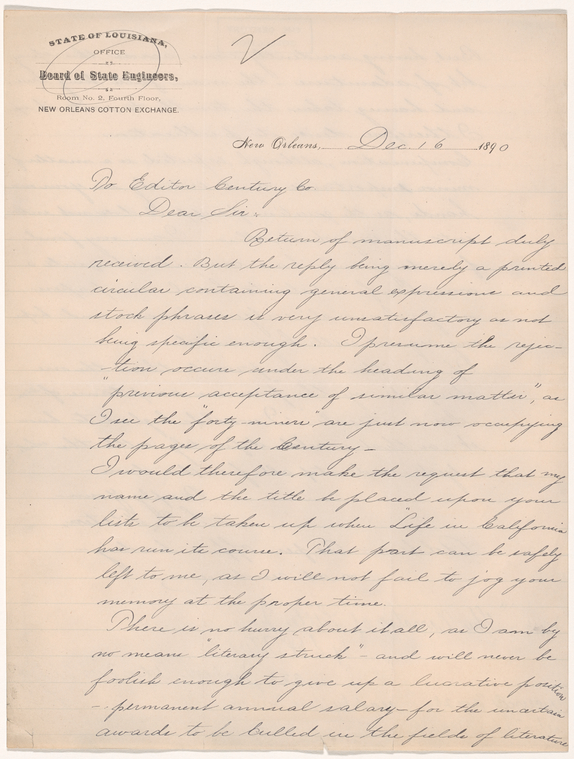 STATE OF LOUISIANA,
OFFICE
Board of State Engineers,
Room No. 2, Fourth Floor,
NEW ORLEANS COTTON EXCHANGE.
New Orleans, Dec. 16 1890
To Editor Century Co.
Dear Sir,
Return of manuscript duly
received. But the reply being merely a printed
circular containing general expressions and
stock phrases is very unsatisfactory as not
being specific enough. I presume the rejec-
-tion occurs under the heading of
"previous acceptance of similar matter", as
I see the "forty-niners" are just now occupying
the pages of the Century—
I would therefore make the request that my
name and the title be placed upon your
lists to be taken up when "Life in California
has run its course. That part can be safely
left to me, as I will not fail to jog your
memory at the proper time.
There is no hurry about it all, as I am by
no means literary struck" - and will never be
foolish enough to give up a lucrative position
- permanent annual salary - for the uncertain
awards to be culled in the fields of literature